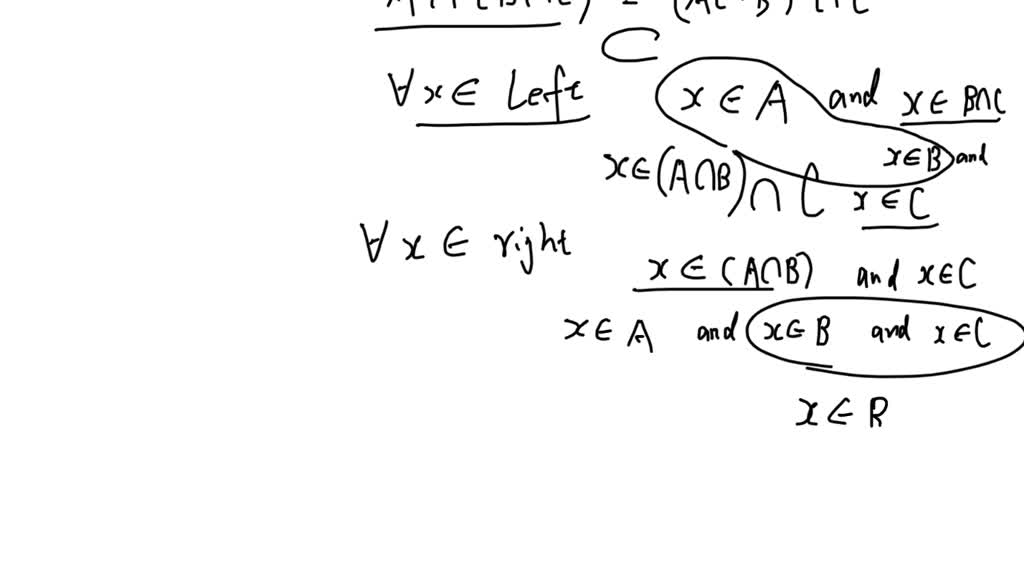 ∀ x ∈ Left x ∈ A and x ∈ B∩C
x ∈ B and
x ∈ (A∩B) ∩ C x ∈ C
∀ x ∈ right
x ∈ (A∩B) and x ∈ C
x ∈ A and x ∈ B and x ∈ C
x ∈ B